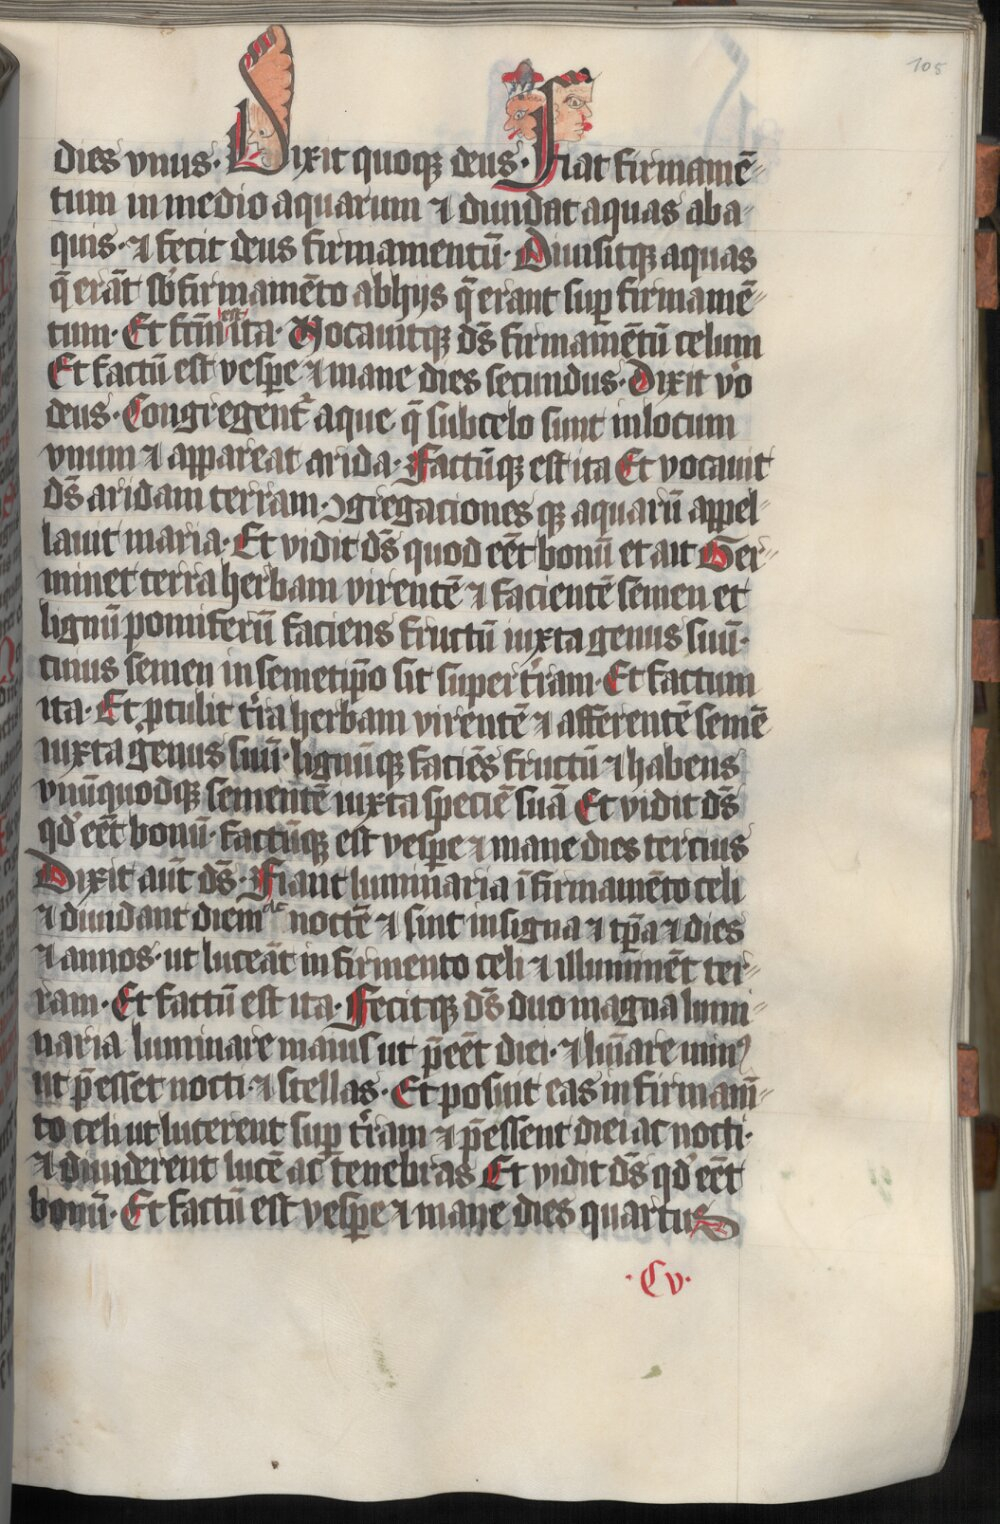 105
dies vnus· Dixit quoqꝫ deus· Fiat firmamē-
tum in medio aquarum ⁊ diuidat aquas aba-
quis· ⁊ fecit deus firmamentū· Diuisitqꝫ aquas
q̄ erāt sb' firmamēto abhijs q̄ erant suꝑ firmamē-
tum· Et fc̄m est ita· Uocauitqꝫ ds̄ firmamētū celum
Et factū est vespe ⁊ mane dies secundus· Dixit v'o
deus· Congregent᷑ aque q̄ subcelo sunt inlocum
vnum ⁊ appareat arida· Factūqꝫ est ita Et vocauit
ds̄ aridam terram· ꝯgregaciones qꝫ aquarū appel-
lauit maria· Et vidit ds̄ quod eēt bonū et ait Ger-
minet terra herbam virentē ⁊ facientē semen et
lignū pomiferū faciens fructū iuxta genus suū·
cuius semen in semetip̄o sit super t'ram· Et factum
ita· Et ꝓtulit t'ra herbam virentē ⁊ afferentē semē
iuxta genus suū· lignūqꝫ faciēs fructū ⁊ habens
vnūquodqꝫ sementē iuxta speciē suā Et vidit ds̄
qd' eēt bonū· factūqꝫ est vespe ⁊ mane dies tercius
Dixit aūt ds̄· Fiant luminaria ī firmamēto celi
⁊ diuidant diem ac noctē ⁊ sint in signa ⁊ tp̄a ⁊ dies
⁊ annos· ut luceāt in firmento celi ⁊ illuminēt ter-
ram· Et factū est ita· Fecitqꝫ ds̄ duo magna lumi-
naria luminare maius ut p̄eēt diei· ⁊ lūiare minꝰ
ut p̄esset nocti· ⁊ stellas· Et posuit eas in firmam̄-
to celi ut lucerent suꝑ t'ram ⁊ p̄essent diei ac nocti·
⁊ diuiderent lucē ac tenebras Et vidit ds̄ qd' eēt
bonū· Et factū est vespe ⁊ mane dies quartus
·Cv·